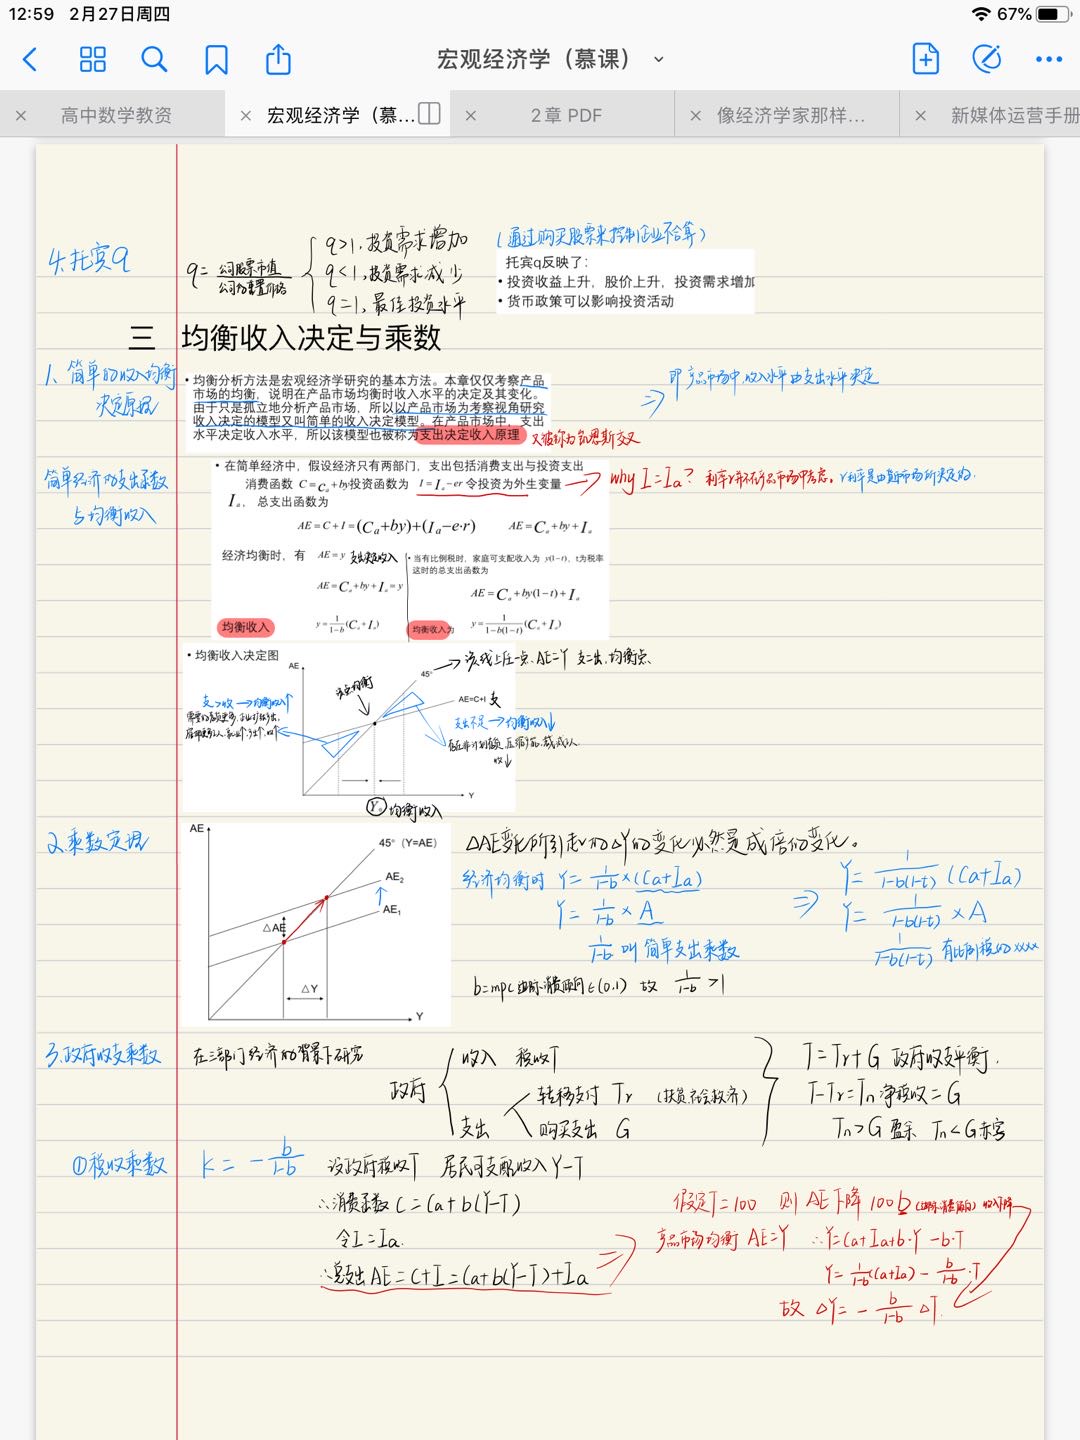 12:59 2月27日周四
67%
宏观经济学（慕课）
高中数学教资
宏观经济学（慕...
2章 PDF
像经济学家那样...
新媒体运营手册
4.托宾q
q=公司股票市值/公司的重置价格
q>1,投资需求增加
q<1,投资需求减少
q=1,最佳投资水平
(通过购买股票来控制企业不合算)
托宾q反映了：
• 投资收益上升，股价上升，投资需求增加
• 货币政策可以影响投资活动
三 均衡收入决定与乘数
1、简单的收入均衡
决定原理
• 均衡分析方法是宏观经济学研究的基本方法。本章仅仅考察产品
市场的均衡，说明在产品市场均衡时收入水平的决定及其变化。
由于只是孤立地分析产品市场，所以以产品市场为考察视角研究
收入决定的模型又叫简单的收入决定模型。在产品市场中，支出
水平决定收入水平，所以该模型也被称为支出决定收入原理
又被称为凯恩斯交叉
⇒ 即产品市场中,收入水平由支出水平决定
简单经济的支出函数
与均衡收入
• 在简单经济中，假设经济只有两部门，支出包括消费支出与投资支出
消费函数 C=Ca+by投资函数为 I=Ia-er 令投资为外生变量
Ia， 总支出函数为
why I=Ia? 利率r并不在产品市场中考虑。r利率是由货币市场所决定的.
AE=C+I=(Ca+by)+(Ia-e·r) AE=Ca+by+Ia
经济均衡时，有 AE=y 支出决定收入
AE=Ca+by+Ia=y
均衡收入 y=1/(1-b)(Ca+Ia)
• 当有比例税时，家庭可支配收入为 y(1-t)，t为税率
这时的总支出函数为
AE=Ca+by(1-t)+Ia
均衡收入为 y=1/(1-b(1-t))(Ca+Ia)
• 均衡收入决定图
AE
45°
该线上任一点,AE=Y 支=出,均衡点
AE=C+I 支
支>收→均衡收入↑
支出不足→均衡收入↓
收↓
Y
Y₀ 均衡收入
2.乘数定理
AE
45°（Y=AE）
AE₂
AE₁
△AE
△Y
Y
△AE变化所引起的△Y的变化必然是成倍的变化。
经济均衡时 Y=1/(1-b)×(Ca+Ia)
Y=1/(1-b)×A
1/(1-b) 叫简单支出乘数
⇒ Y=1/(1-b(1-t))(Ca+Ia)
Y=1/(1-b(1-t))×A
1/(1-b(1-t)) 有比例税的xxxx
b=mpc边际消费倾向∈(0,1) 故 1/(1-b)>1
3.政府收支乘数
在三部门经济的背景下研究
政府
收入 税收T
支出
转移支付 Tr (扶贫,社会救济)
购买支出 G
T=Tr+G 政府收支平衡.
T-Tr=Tn净税收=G
Tn>G 盈余 Tn<G赤字
①税收乘数
k=-b/(1-b) 设政府税收T 居民可支配收入Y-T
∴消费函数C=Ca+b(Y-T)
令I=Ia.
∴总支出AE=C+I=Ca+b(Y-T)+Ia
假定T=100 则AE下降100b(边际消费倾向)收入下降
产品市场均衡 AE=Y ∴Y=Ca+Ia+b·Y-b·T
Y=1/(1-b)(Ca+Ia)-b/(1-b)·T
故 △Y=-b/(1-b)△T.